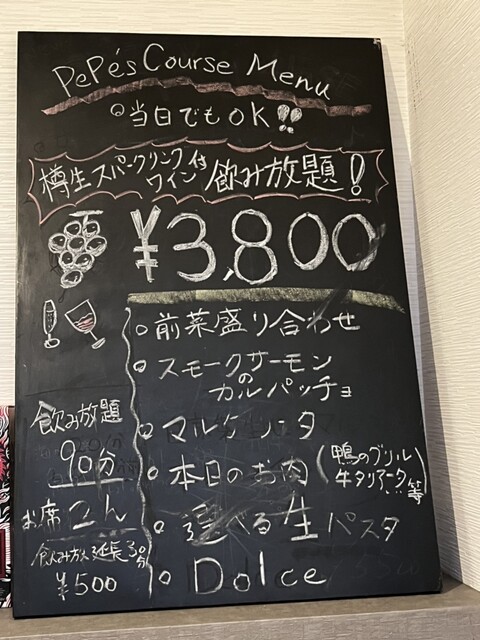 PePe's Course Menu
◎当日でもOK!!
樽生スパークリングワイン付 飲み放題!
¥3,800
○前菜盛り合わせ
○スモークサーモンのカルパッチョ
○マルゲリータ
○本日のお肉(鴨のグリル 牛タリアータ等)
○選べる生パスタ
○Dolce
飲み放題
90分
お席2h
飲み放延長30分
¥500